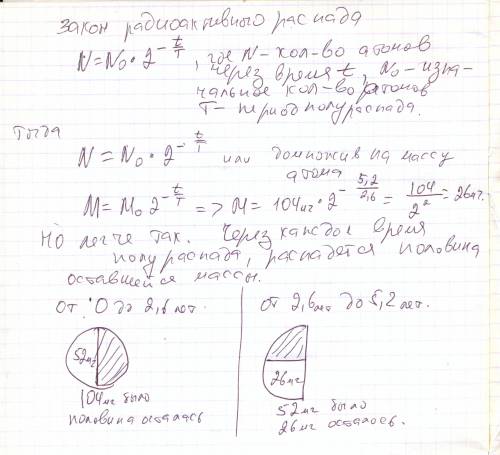 Закон радиоактивного распада
N=N₀·2^(-t/T), где N-кол-во атомов
через время t, N₀-изна-
чальное кол-во атомов
T-период полураспада.
тогда
N=N₀·2^(-t/T) или домножив на массу
атома
M=M₀ 2^(-t/T) => M=104мг·2^(-5,2/2,6) = 104/2² = 26мг.
Но легче так. Через каждое время
полураспада, распадётся половина
оставшейся массы.
От 0 до 2,6 лет.
52мг
104мг было
половина осталась
от 2,6лет до 5,2лет.
26мг
52мг было
26мг осталось.